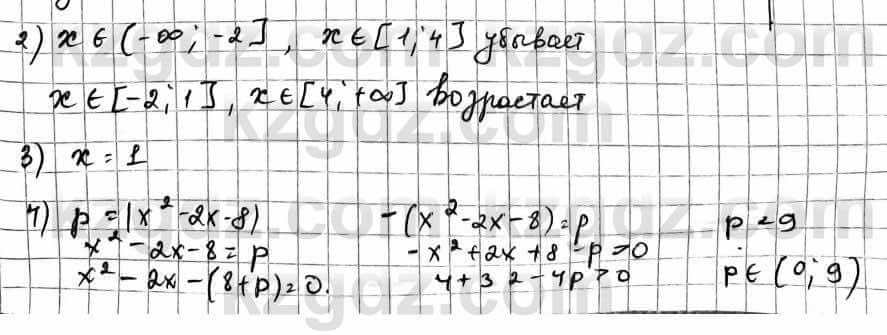 2) x ∈ (-∞; -2], x ∈ [1; 4] убывает
x ∈ [-2; 1], x ∈ [4; +∞] возрастает
3) x = 1
4) p = |x² - 2x - 8) -(x² - 2x - 8) = p p = 9
x² - 2x - 8 = p -x² + 2x + 8 - p > 0
x² - 2x - (8 + p) = 0. 4 + 32 - 4p > 0 p ∈ (0; 9)
kzgdz.com